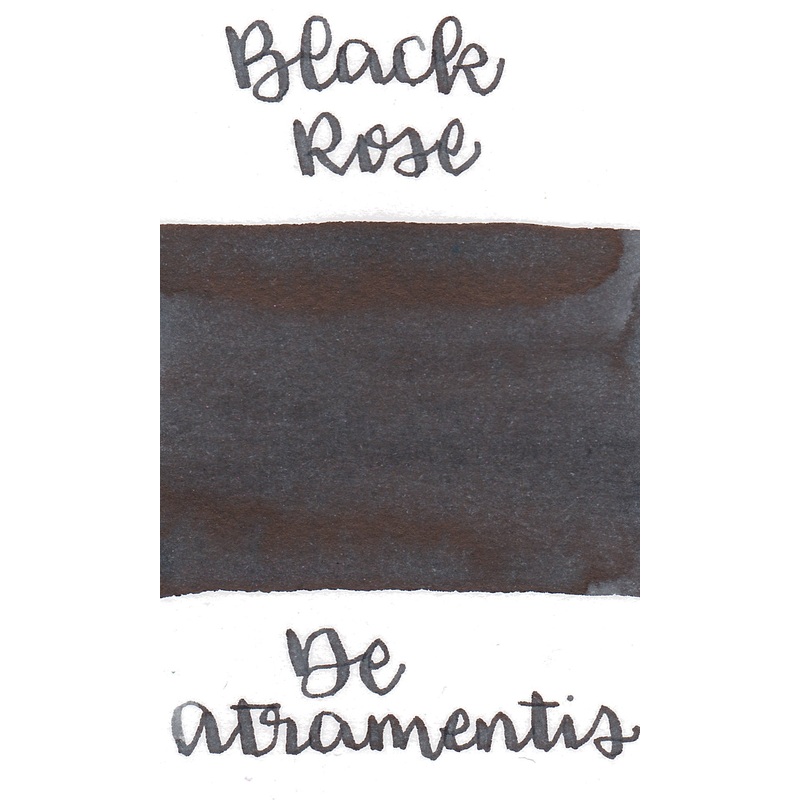 Black
Rose
De
Atramentis